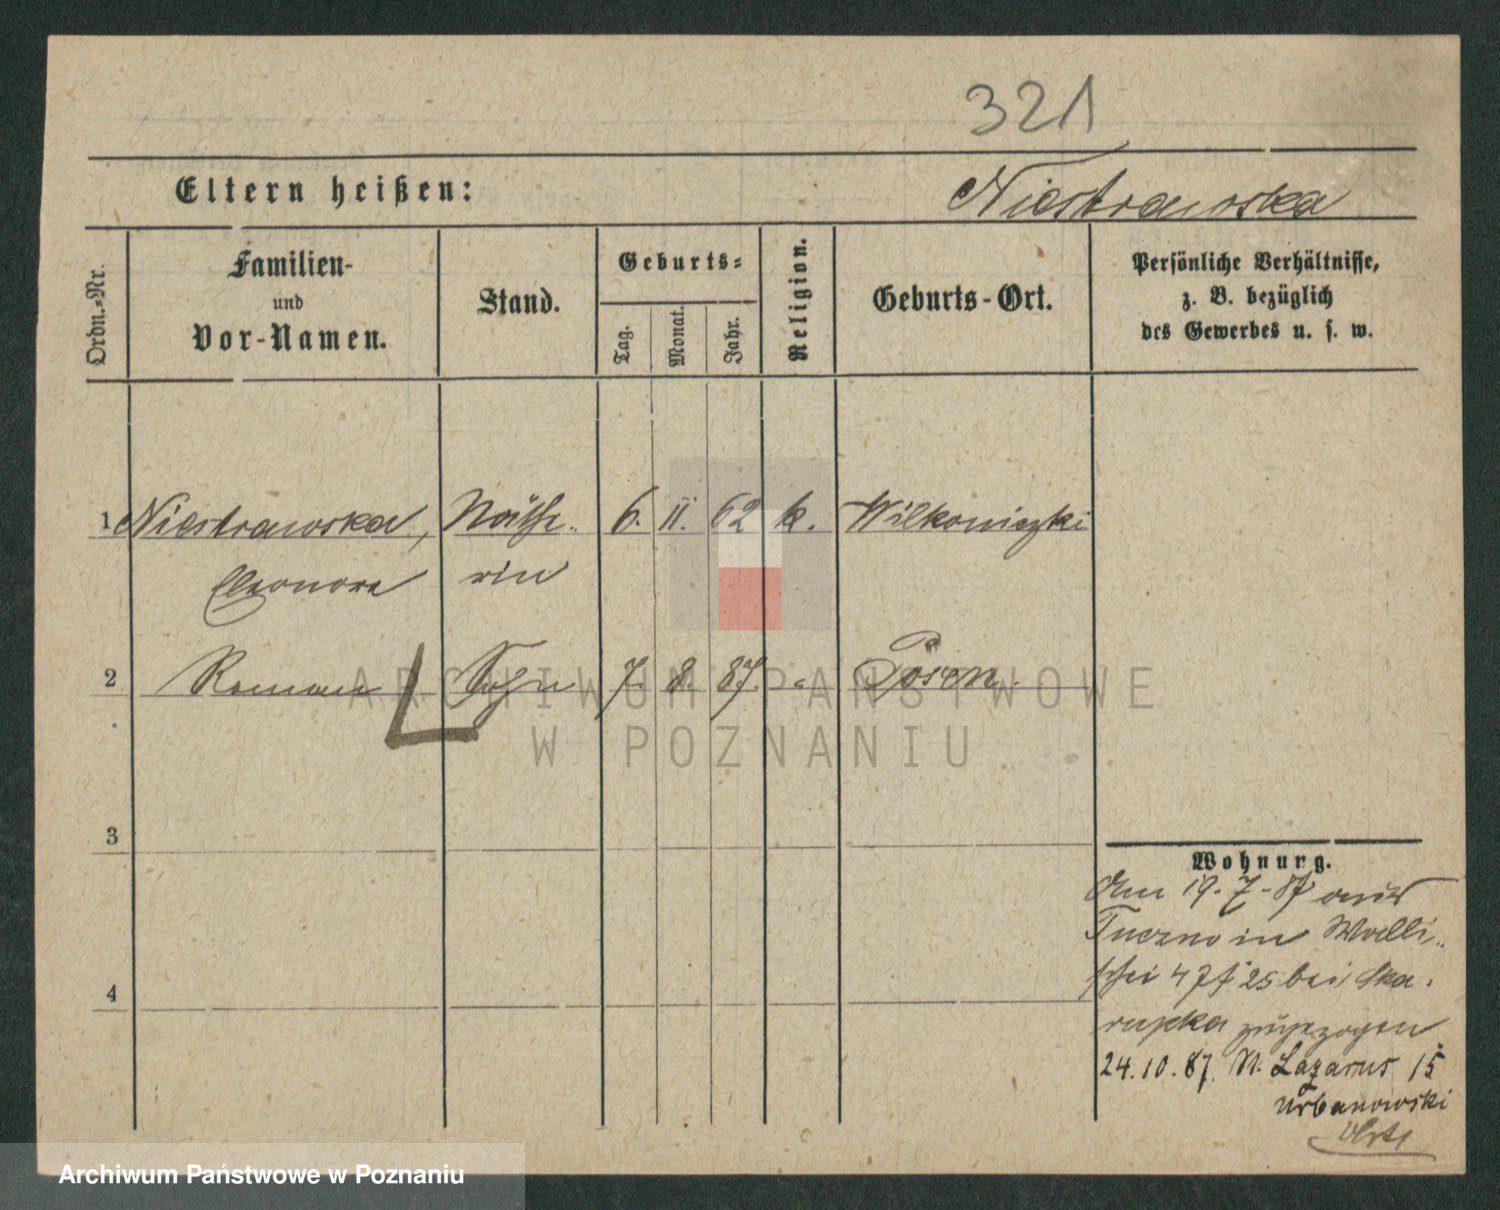 321
Eltern heißen:
Niestrawska
Ordn.-Nr.
Familien-
und
Vor-Namen.
Stand.
Geburts-
Tag.
Monat.
Jahr.
Religion.
Geburts-Ort.
Persönliche Verhältnisse,
z. B. bezüglich
des Gewerbes u. s. w.
1 Niestrawska, Näthe- 6. II. 62 k. Wilkoniczki
Eleonore rin
2 Roman Sohn 7. 8. 87. " Posen
3
4
Wohnung.
Am 19. 7. 87 aus
Tuczno in Walli-
schei 47/ 25 bei Ska-
rupka zugezogen
24.10.87. St. Lazarus 15
Urbanowski
ARCHIWUM PAŃSTWOWE
W POZNANIU
Archiwum Państwowe w Poznaniu